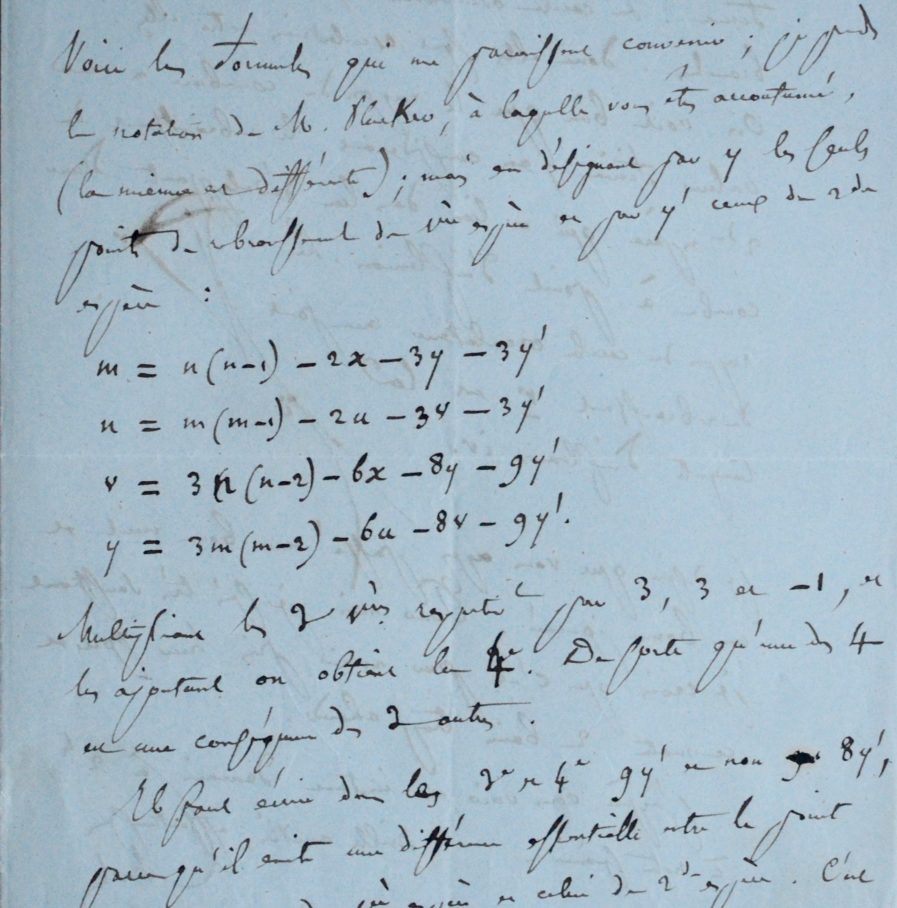 Voici les formules qui me paraissent convenir ; je prends
la notation de M. Plucker, à laquelle vous êtes accoutumé,
(la mienne est différente) ; mais en désignant par y les seuls
points de rebroussement de 1ère espèce et par y' ceux de 2de
espèce :
m = n(n-1) - 2x - 3y - 3y'
n = m(m-1) - 2u - 3v - 3y'
v = 3n(n-2) - 6x - 8y - 9y'
y = 3m(m-2) - 6u - 8v - 9y'.
Multipliant les 3 1ères respectivt par 3, 3 et -1, et
les ajoutant on obtient la 4e. De sorte qu'une des 4
est une conséquence des 3 autres.
Il faut écrire dans les 3e et 4e 9y' et non 8y',
parce qu'il existe une différence essentielle entre le point
de 1ère espèce et celui de 2de espèce. C'est